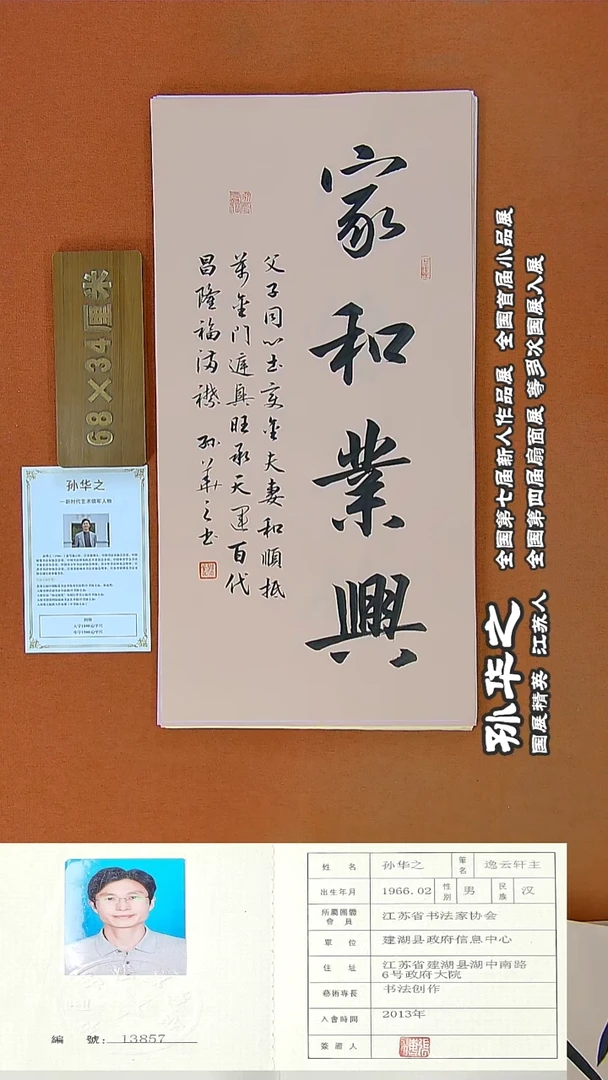 家和業興
父子同心土变金夫妻和順抵
萬金門庭興旺承天運百代
昌隆福满襟 孙華之书
68×34厘米
孙华之
—新时代艺术领军人物
全国第七届新人作品展 全国首届小品展
全国第四届扇面展 等多次国展入展
孙华之
国展精英 江苏人
姓 名 孙华之 筆名 逸云轩主
出生年月 1966.02 性別 男 民族 汉
所屬團體會員 江苏省书法家协会
單 位 建湖县政府信息中心
住 址 江苏省建湖县湖中南路
6号政府大院
藝術專長 书法创作
入會時間 2013年
簽證人
編 號: 13857